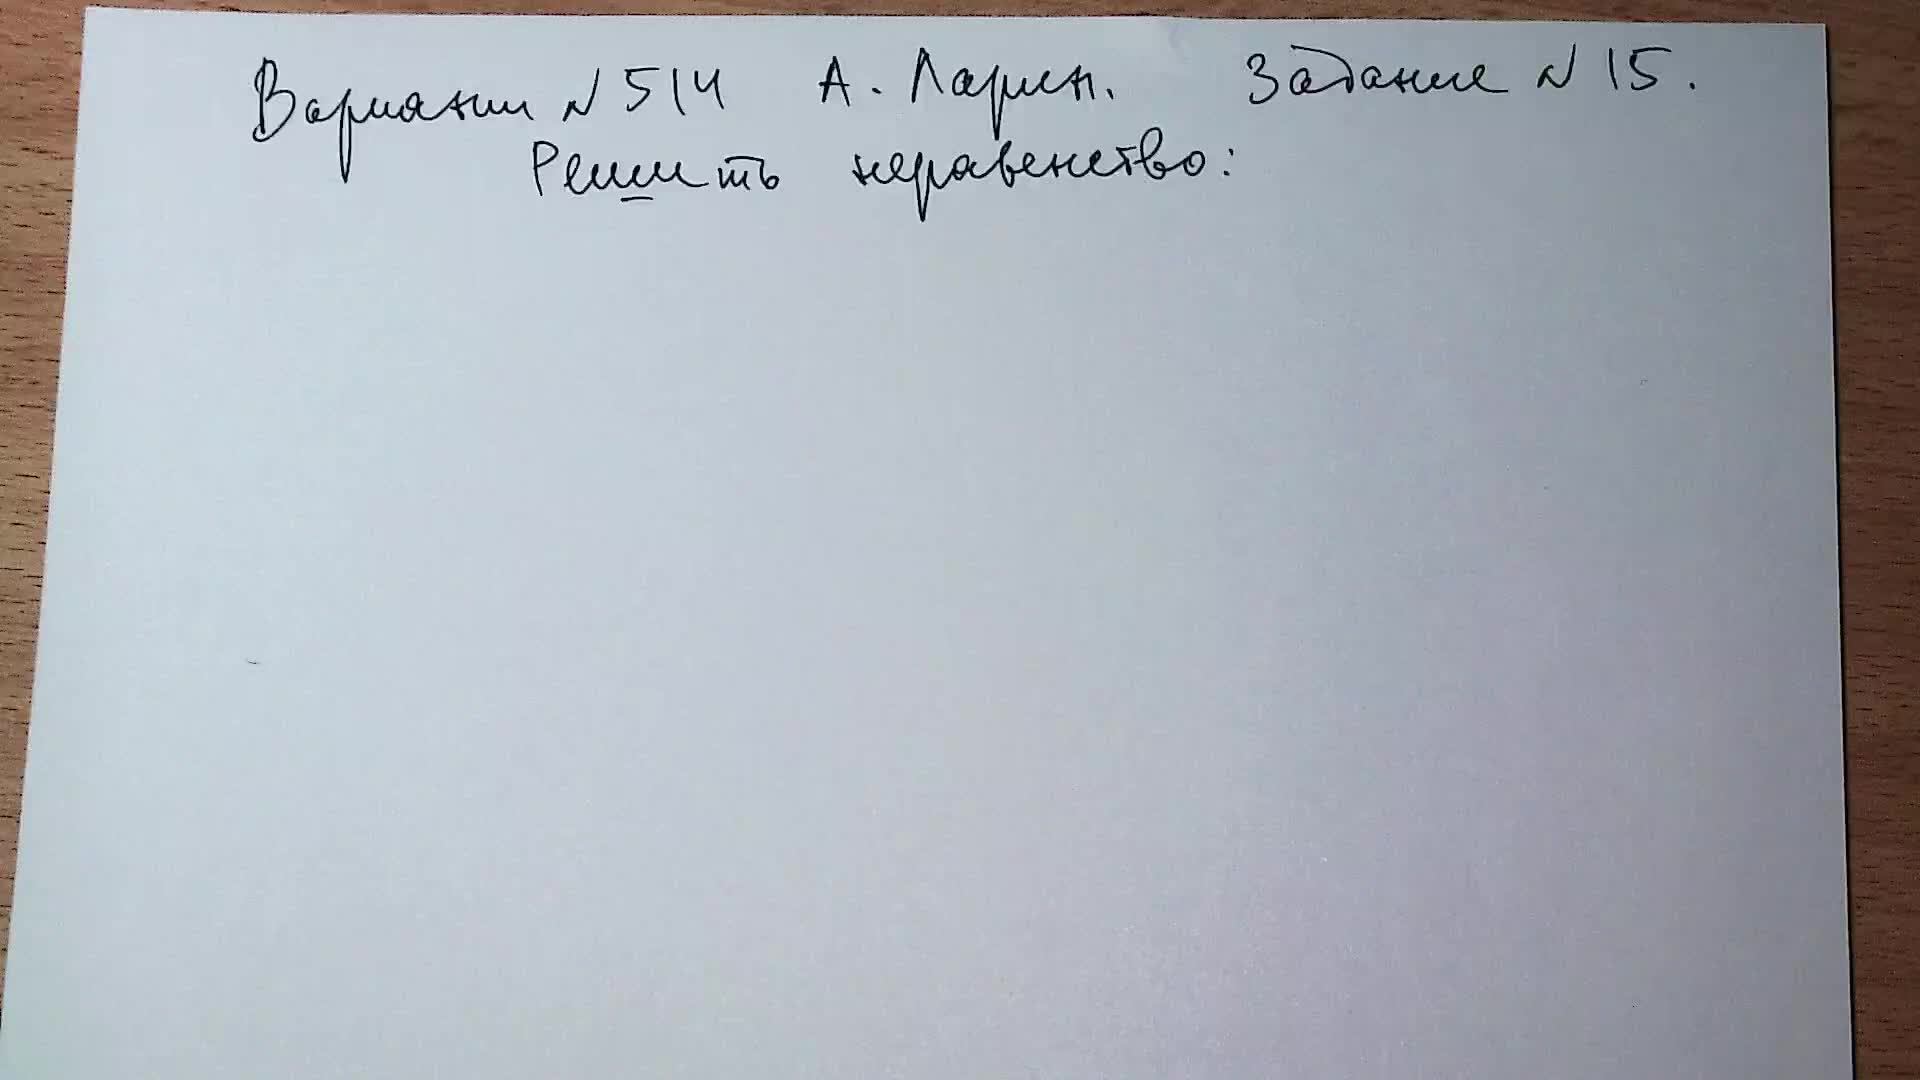 Вариант N 514 А. Ларин. Задание N 15.
Решить неравенство: